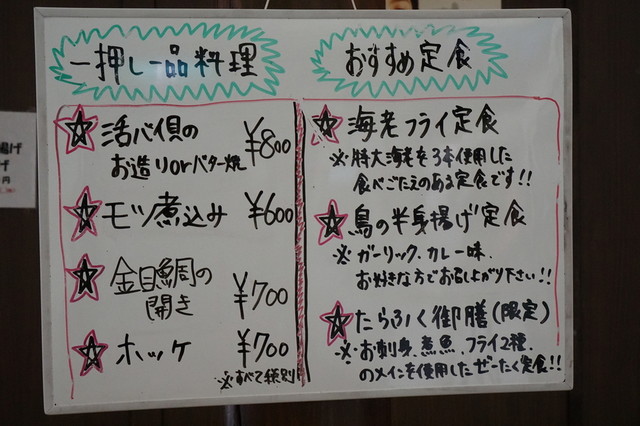 一押し一品料理
活バイ貝の
お造りorバター焼 ¥800
モツ煮込み ¥600
金目鯛の
開き ¥700
ホッケ ¥700
※すべて税別
おすすめ定食
海老フライ定食
※特大海老を3本使用した
食べごたえのある定食です!!
鳥の半身揚げ定食
※ガーリック、カレー味、
お好きな方でお召し上がり下さい!!
たらふく御膳(限定)
※お刺身、煮魚、フライ2種、
のメインを使用したぜーたく定食!!
揚げ
げ
円